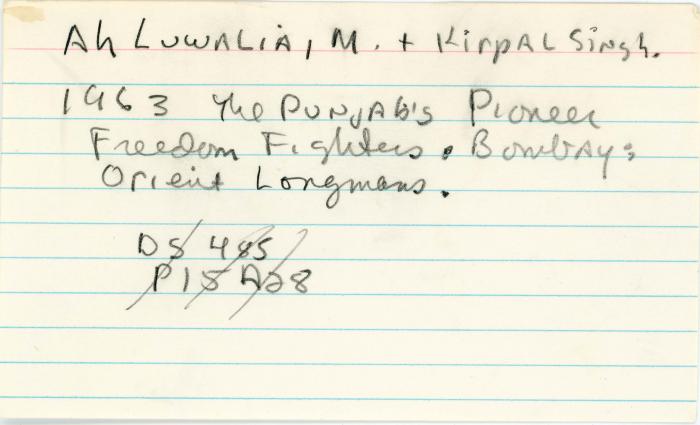 Ah Luwalia, M. + Kirpal Singh.
1963 The Punjab's Pioneer
Freedom Fighters. Bombay:
Orient Longmans.
DS 485
P15 A28